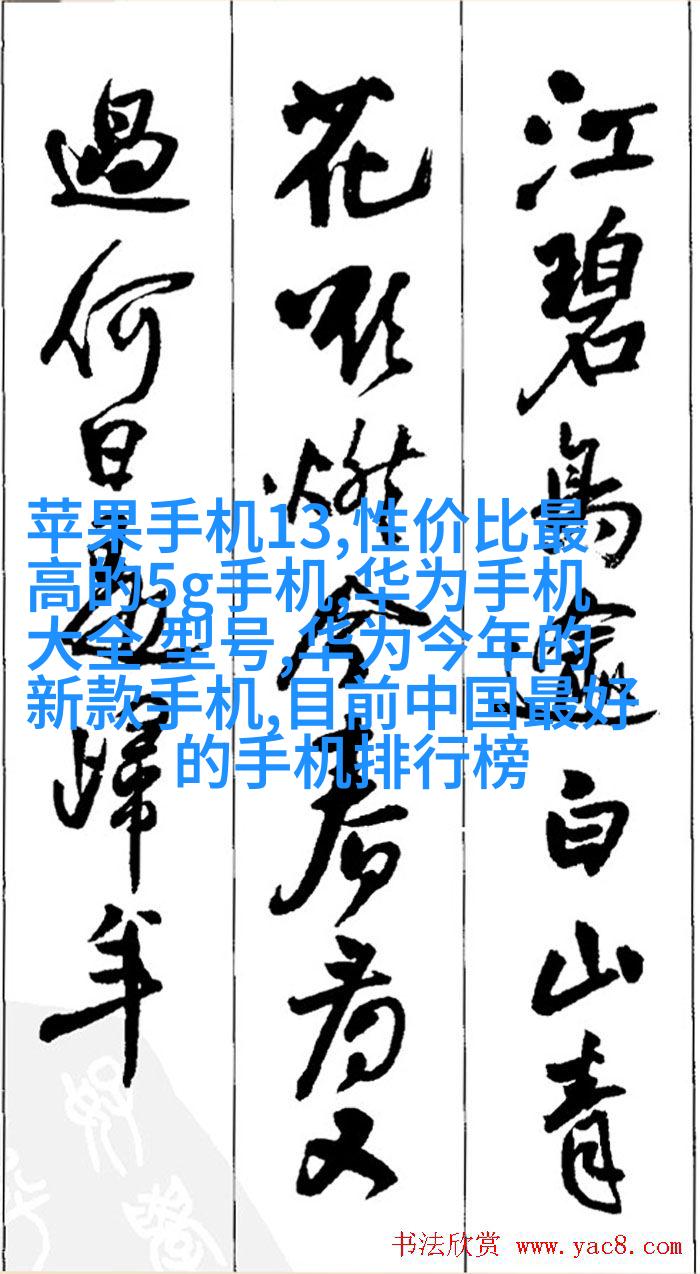 江碧鳥逾白山青
花欲燃今春看又
過何日是歸年
苹果手机13,性价比最
高的5g手机,华为手机
大全 型号,华为今年的
新款手机,目前中国最好
的手机排行榜
书法欣赏 www.yac8.com